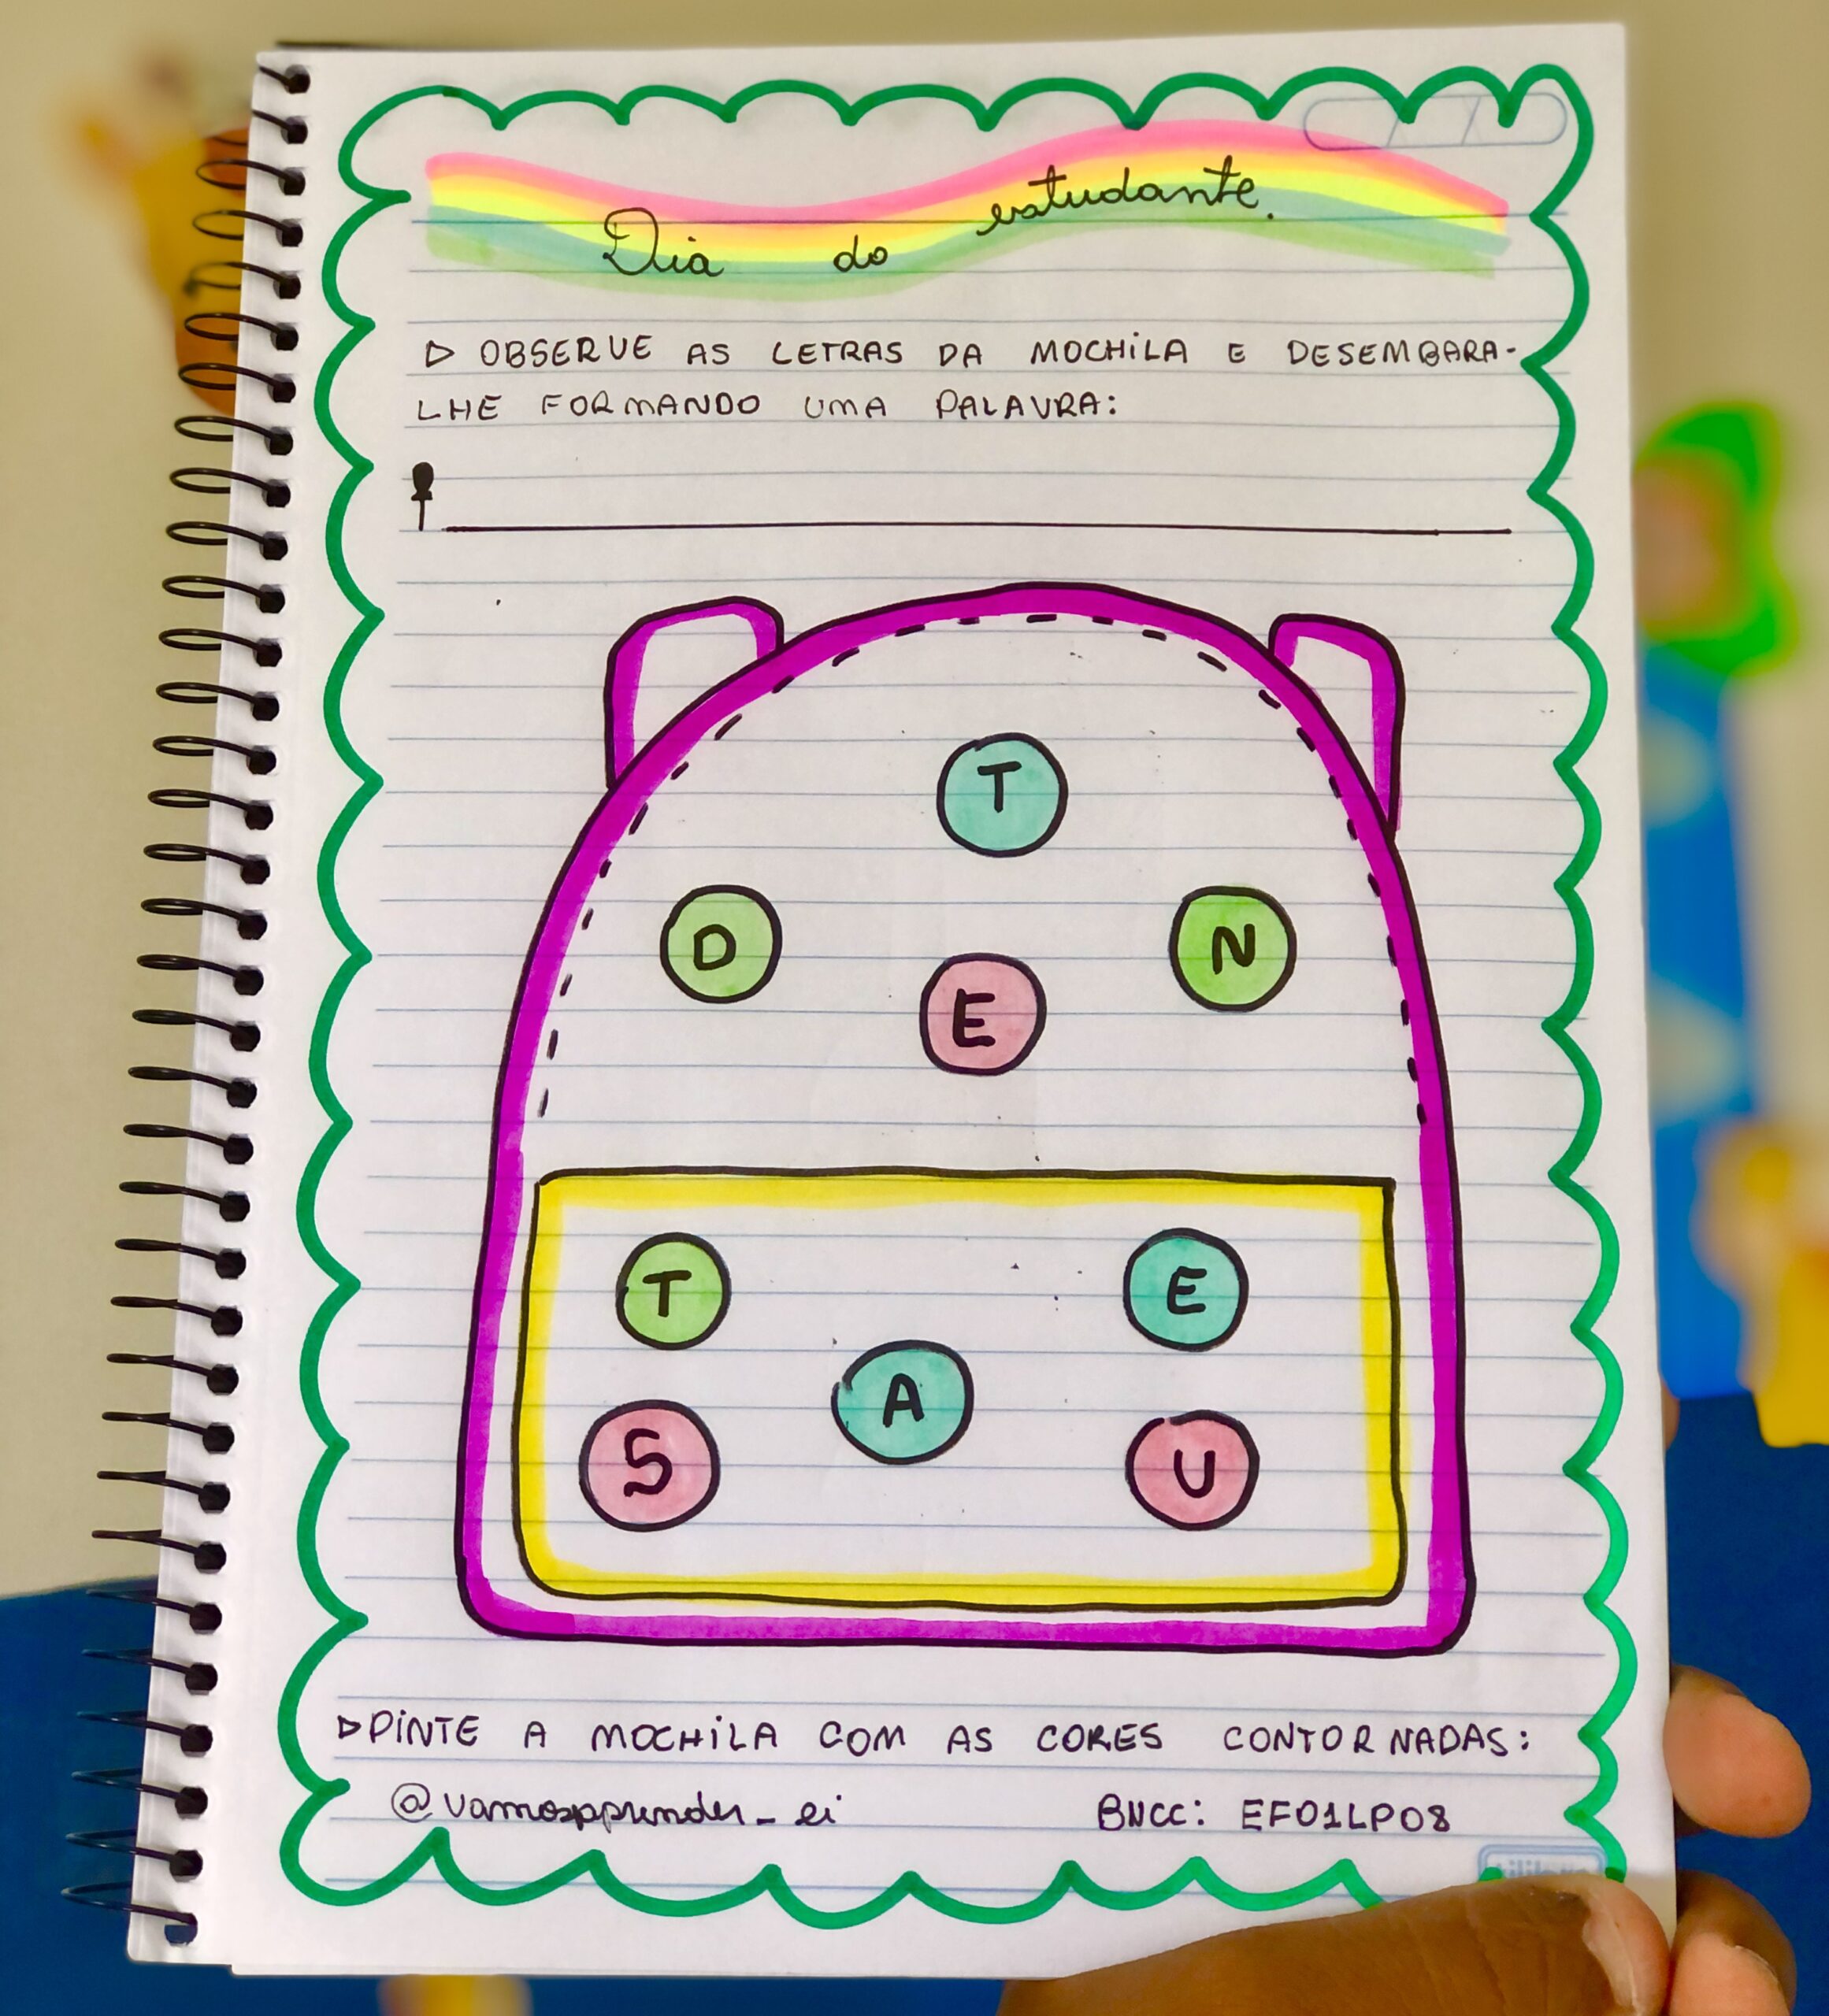 Dia do estudante.
▷ OBSERVE AS LETRAS DA MOCHILA E DESEMBARA-
LHE FORMANDO UMA PALAVRA:
T
D N
E
T E
A
S U
▷ PINTE A MOCHILA COM AS CORES CONTORNADAS:
@vamospprender_ei BNCC: EF01LP08